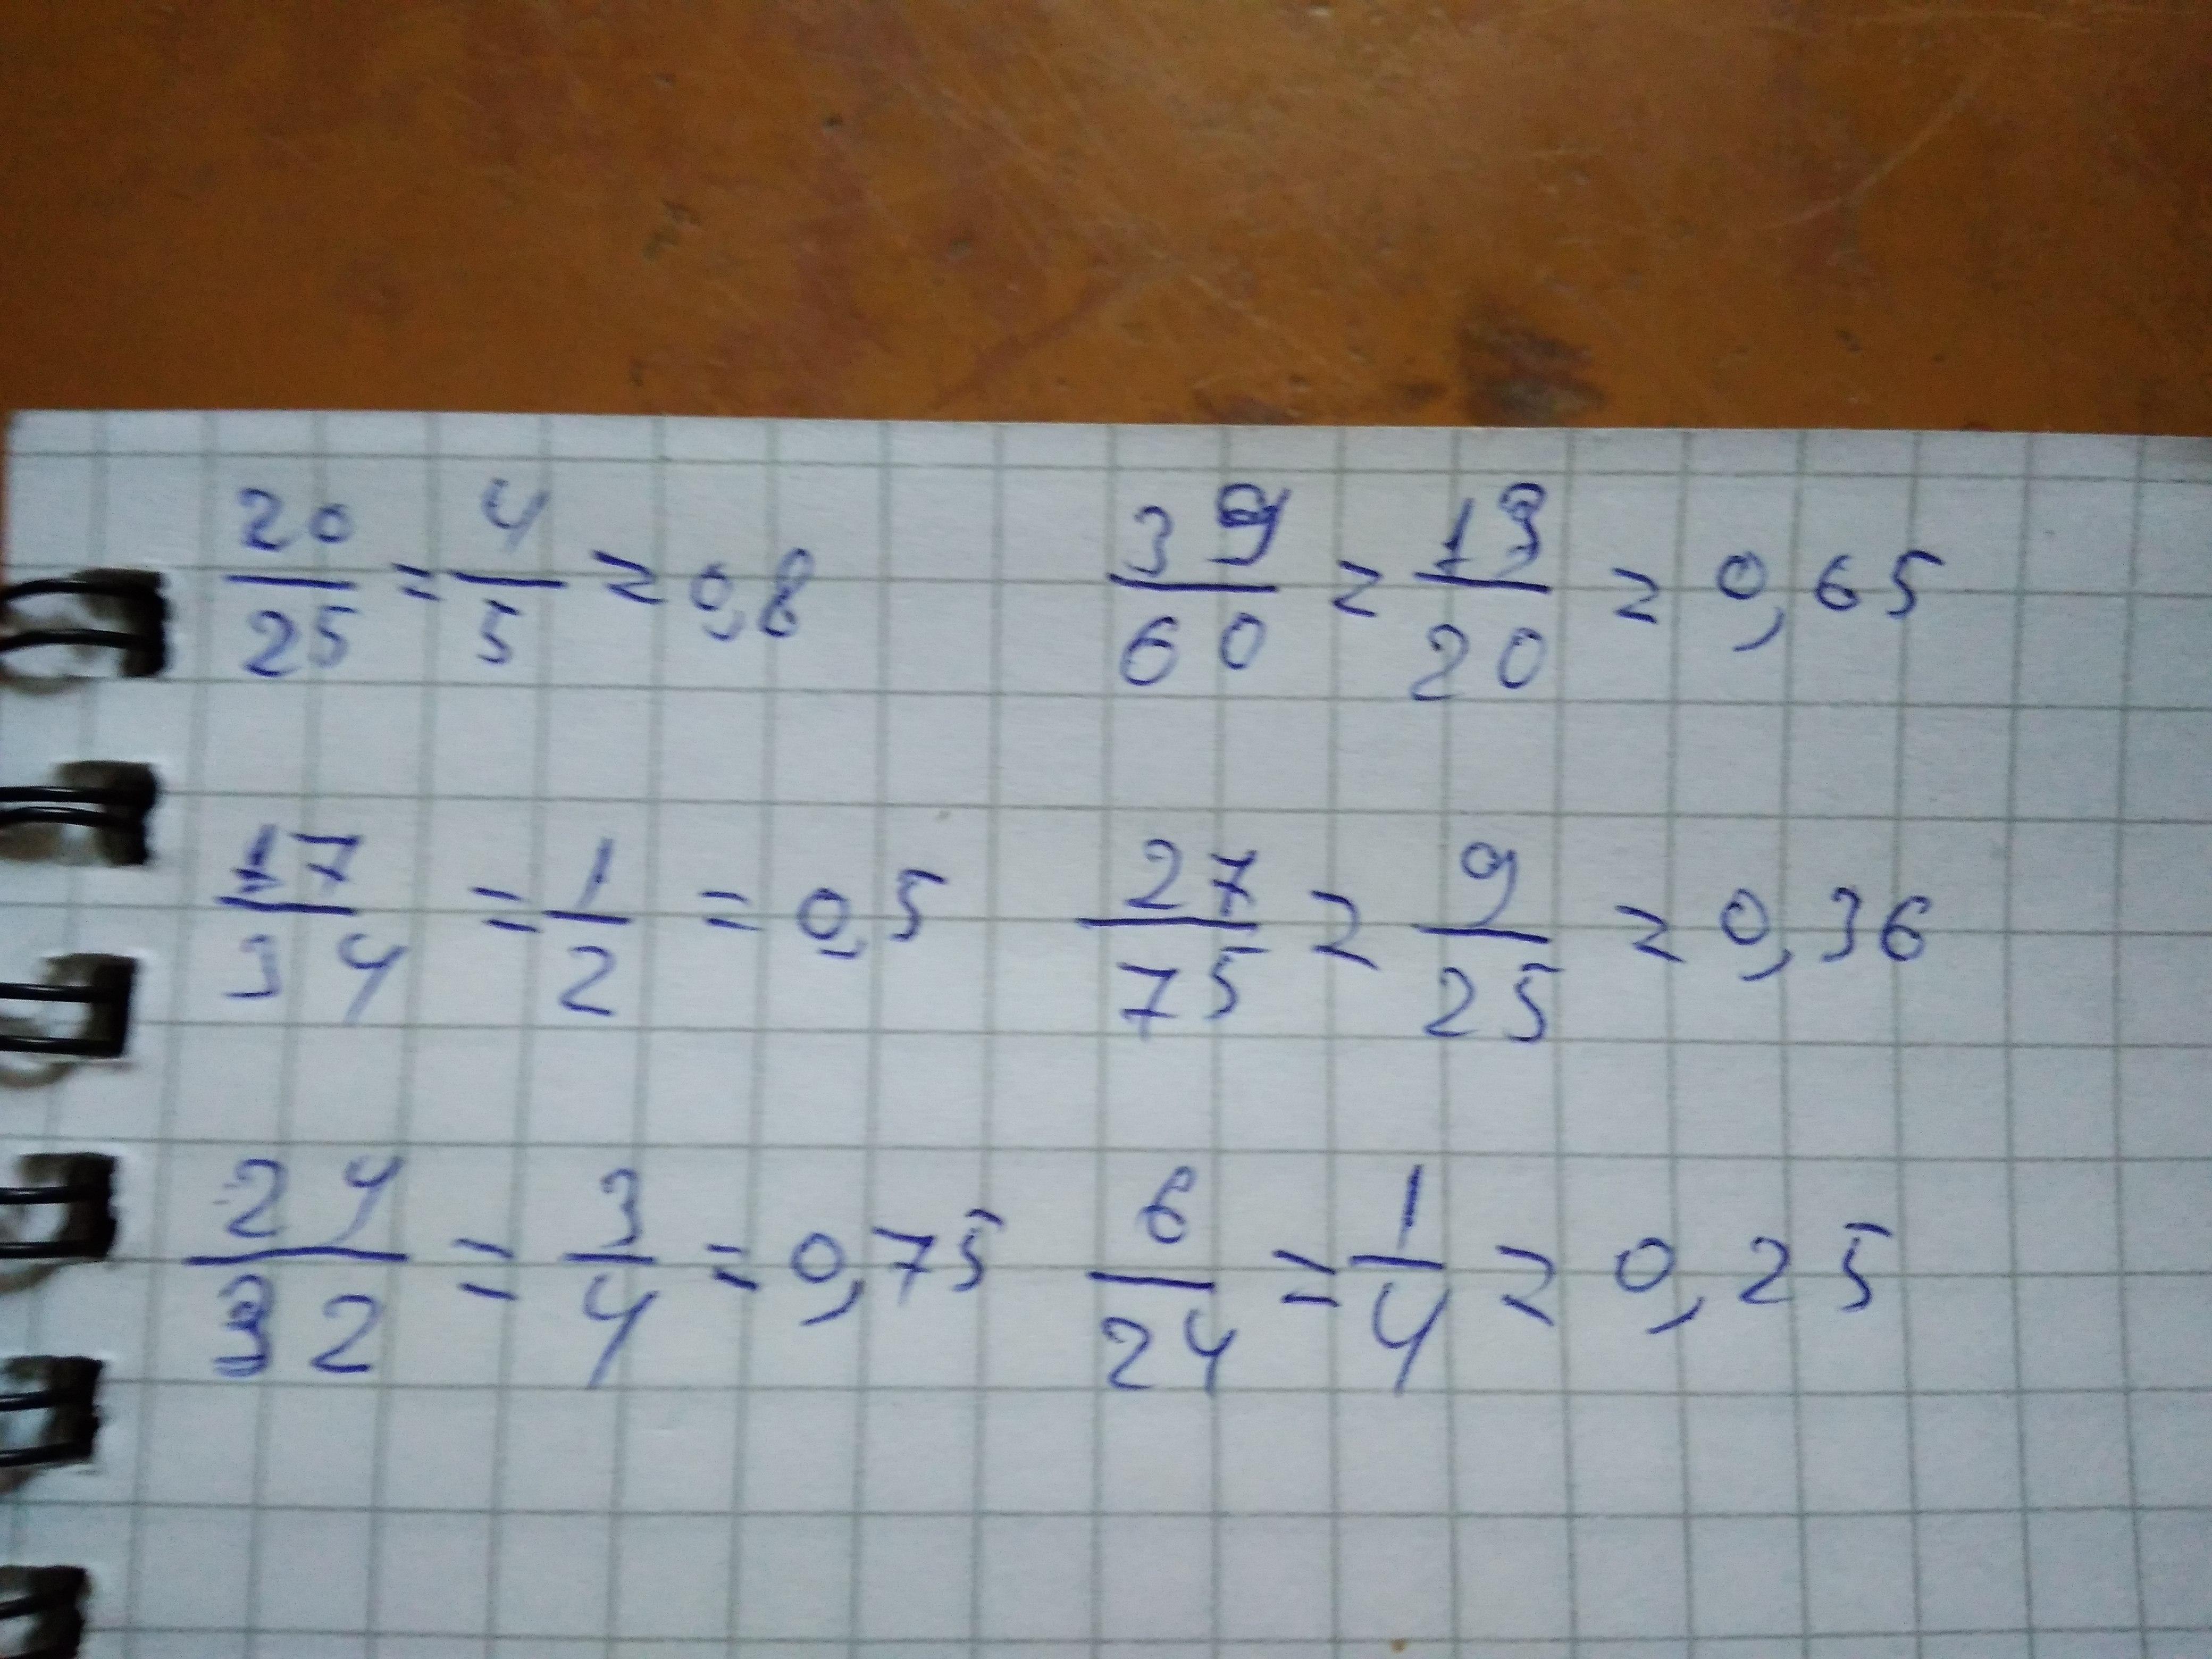 20/25 = 4/5 = 0,8    39/60 = 13/20 = 0,65
17/34 = 1/2 = 0,5    27/75 = 9/25 = 0,36
24/32 = 3/4 = 0,75    6/24 = 1/4 = 0,25